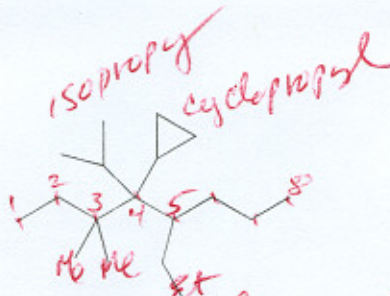 isopropyl
cyclopropyl
1 2 3 4 5 8
Me Me
Et